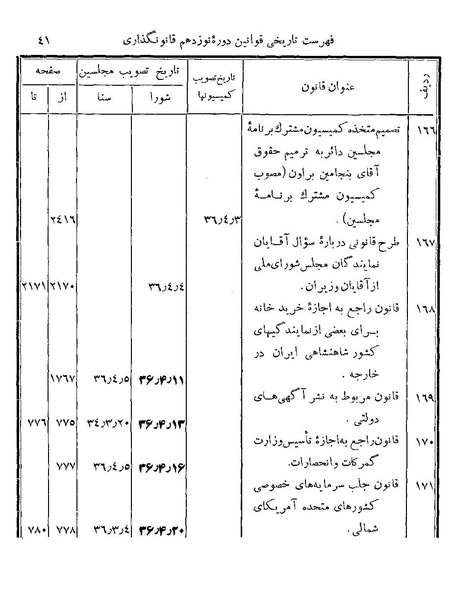 فهرست تاریخی قوانین دورهٔ نوزدهم قانونگذاری ۴۱
ردیف عنوان قانون تاریخ تصویب کمیسیونها تاریخ تصویب مجلسین صفحه
شورا سنا از تا
۱۶۶ تصمیم متخذه کمیسیون مشترك برنامهٔ
مجلسین دائر به ترمیم حقوق
آقای بنجامین براون (مصوب
کمیسیون مشترك برنامهٔ
مجلسین). ۳۶٫۴٫۳ ۲۴۱۶
۱۶۷ طرح قانونی دربارهٔ سؤال آقایان
نمایندگان مجلس شورای ملی
از آقایان وزیران. ۳۶٫۴٫۴ ۲۱۷۰ ۲۱۷۱
۱۶۸ قانون راجع به اجازهٔ خرید خانه
برای بعضی از نمایندگیهای
کشور شاهنشاهی ایران در
خارجه . ۳۶٫۴٫۱۱ ۳۶٫۴٫۵ ۱۷۶۷
۱۶۹ قانون مربوط به نشر آگهی‌های
دولتی . ۳۶٫۴٫۱۳ ۳۴٫۳٫۲۰ ۷۷۵ ۷۷۶
۱۷۰ قانون راجع به اجازهٔ تأسیس وزارت
گمرکات و انحصارات. ۳۶٫۴٫۱۶ ۳۶٫۴٫۵ ۷۷۷
۱۷۱ قانون جلب سرمایه‌های خصوصی
کشورهای متحده آمریکای
شمالی. ۳۶٫۴٫۲۰ ۳۶٫۳٫۴ ۷۷۸ ۷۸۰